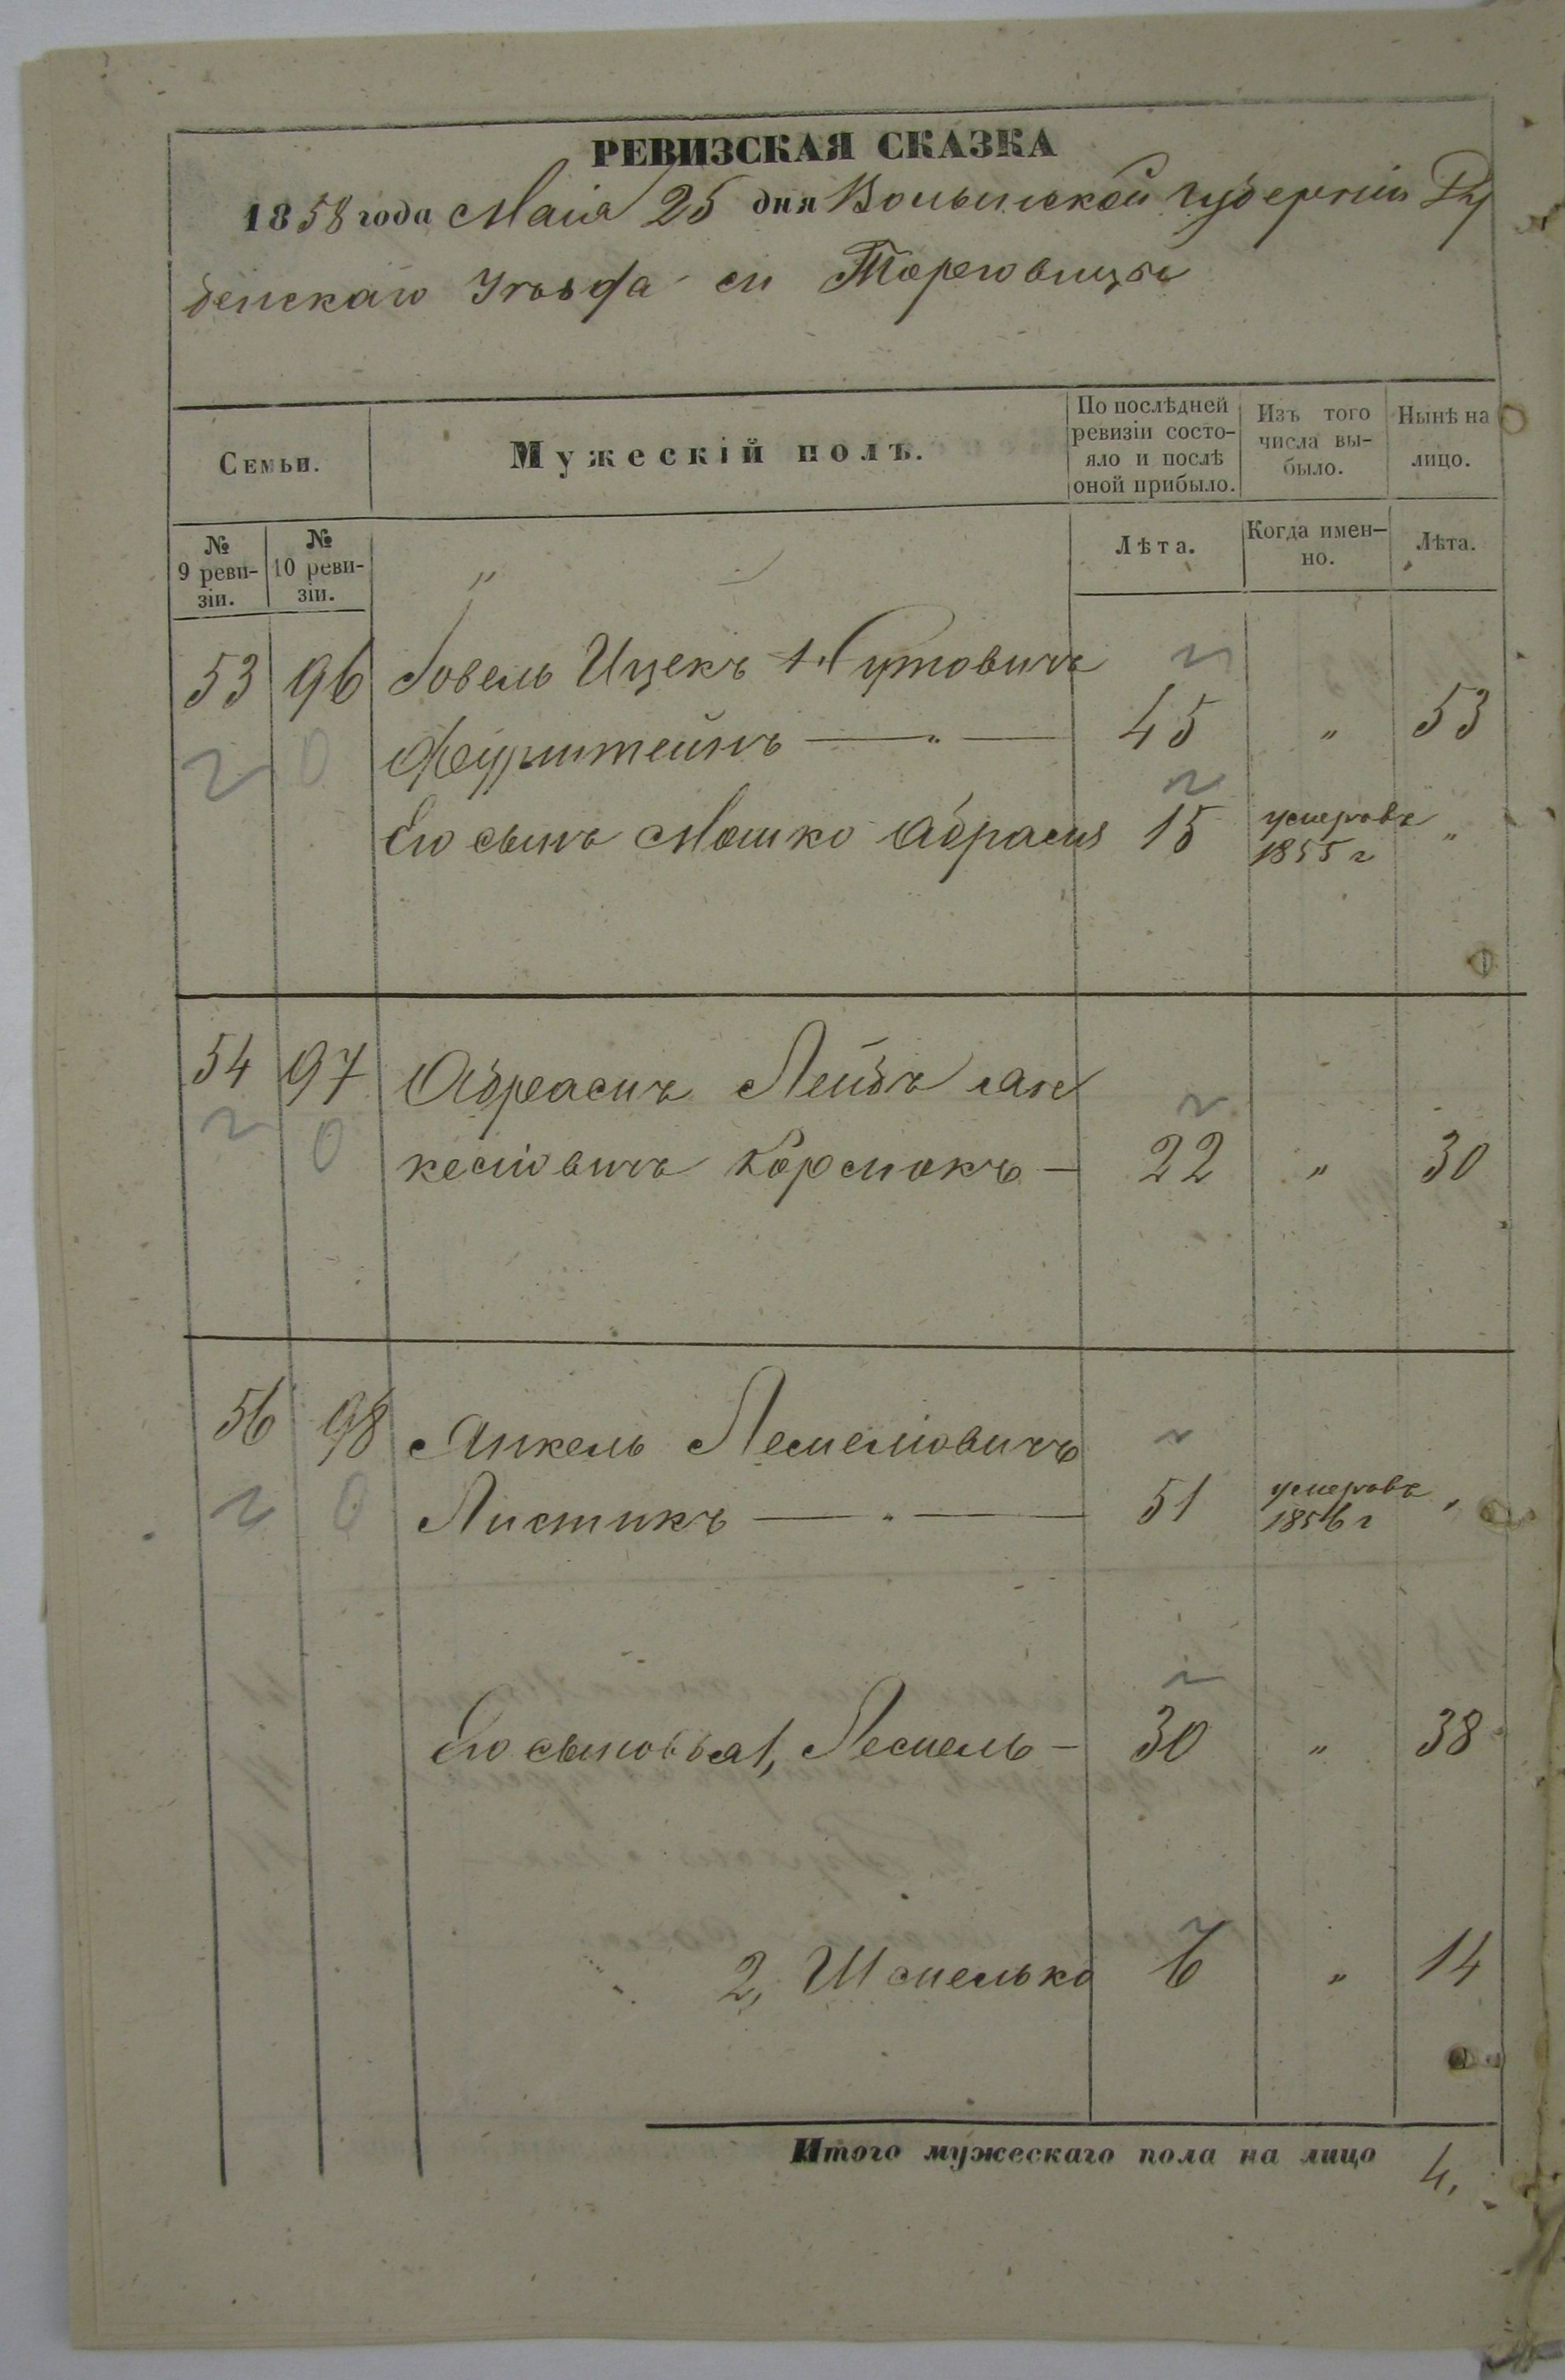 РЕВИЗСКАЯ СКАЗКА
1858 года Маiя 25 дня Волынской губернiи Ду
бенскаго Уѣзда м Торговицы
Семьи.
Мужескiй полъ.
По послѣдней ревизiи состо-
яло и послѣ оной прибыло.
Изъ того числа вы-
было.
Нынѣ на лицо.
№ 9 реви-
зiи.
№ 10 реви-
зiи.
Лѣта.
Когда имен-
но.
Лѣта.
53 96 Говель Ицекъ
Фурштейнъ — " — 45 " 53
Его сынъ Мошко Абрамъ 15 умеръ въ 1855 г "
54 97 Абрамъ Лейбъ Ян
келiовичъ Кормакъ — 22 " 30
56 98 Янкель Лемелiовичъ
Листикъ — " — 51 умеръ въ 1856 г "
Его сыновья 1, Лемель — 30 " 38
2, Шмелько 6 " 14
Итого мужескаго пола на лицо 4,